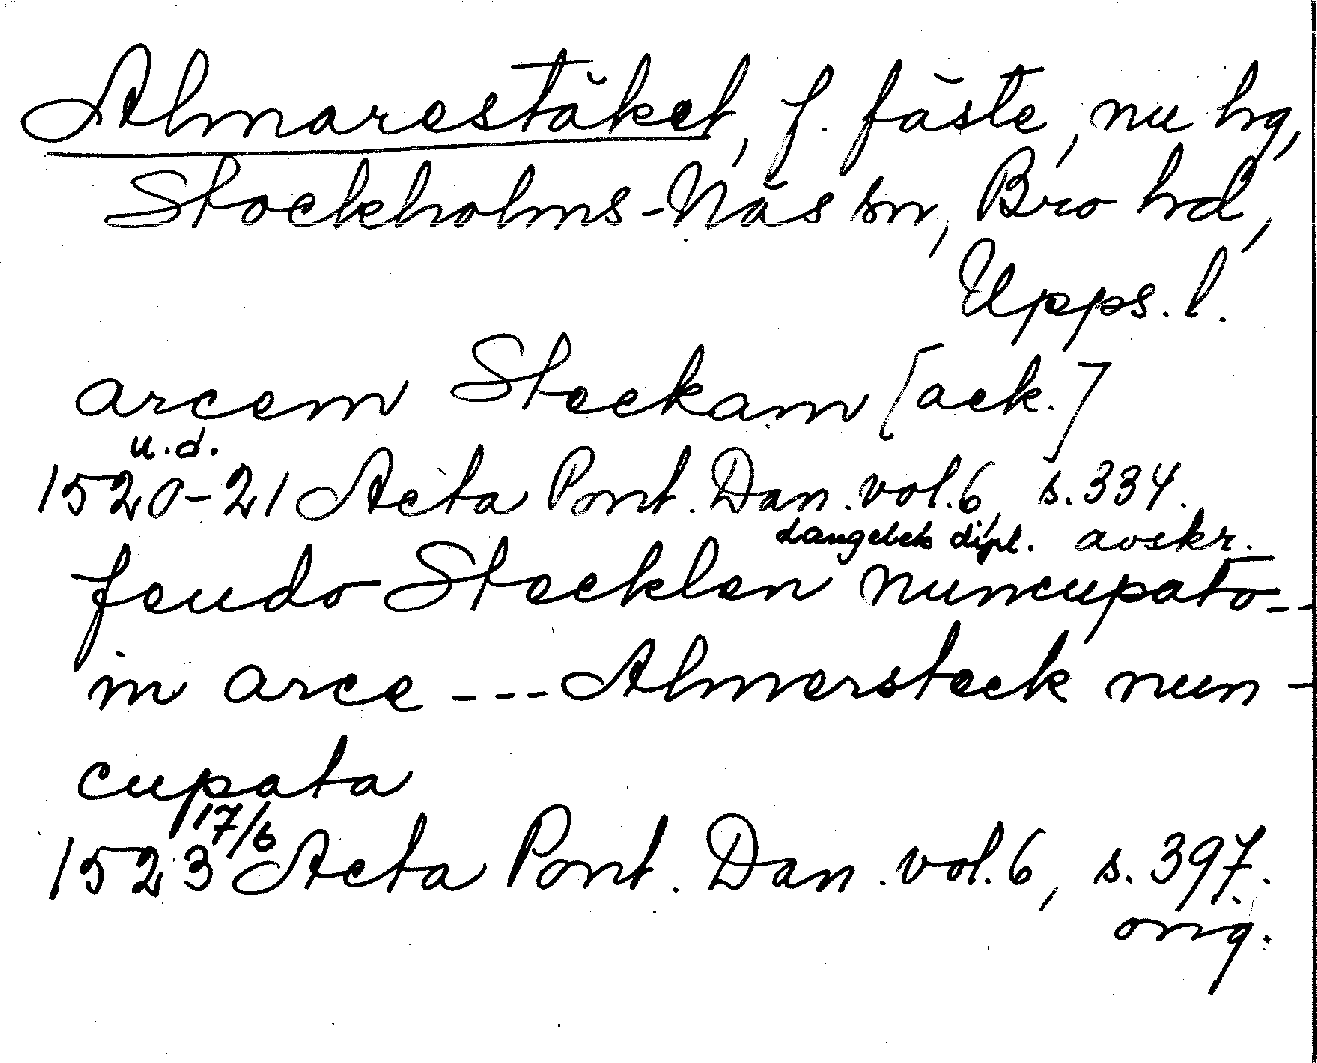 Almarestäket, f. fäste, nu hg,
Stockholms-Näs sn, Bro hd,
Upps. l.
arcem Steckam [ack.]
u.d.
1520-21 Acta Pont. Dan. vol. 6, s. 334.
Langebeks dipl. avskr.
feudo Stecklen nuncupato --
in arce --- Almersteck nun-
cupata
17/6
1523 Acta Pont. Dan. vol. 6, s. 397.
orig.